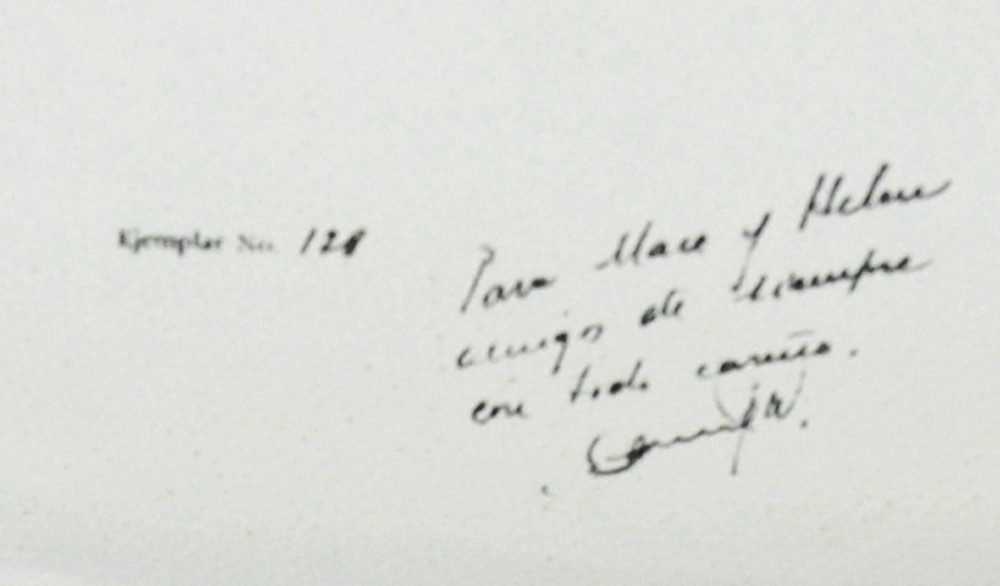 Ejemplar No. 128
Para Mace y Helen
amigos de siempre
con todo cariño.